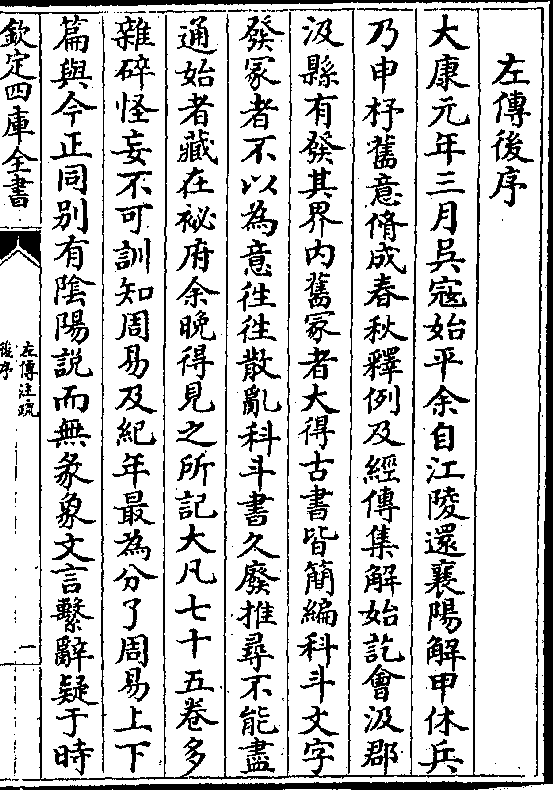 左傳後序
大康元年三月吳寇始平余自江陵還襄陽解甲休兵
乃申杼舊意脩成春秋釋例及經傳集解始訖會汲郡
汲縣有發其界内舊冢者大得古書皆簡編科斗文字
發冢者不以為意徃徃散亂科斗書久廢推尋不能盡
通始者藏在祕府余晚得見之所記大凡七十五卷多
雜碎怪妄不可訓知周易及紀年最為分了周易上下
篇與今正同别有隂陽説而無彖象文言繫辭疑于時
欽定四庫全書
左傳注疏
後序
一